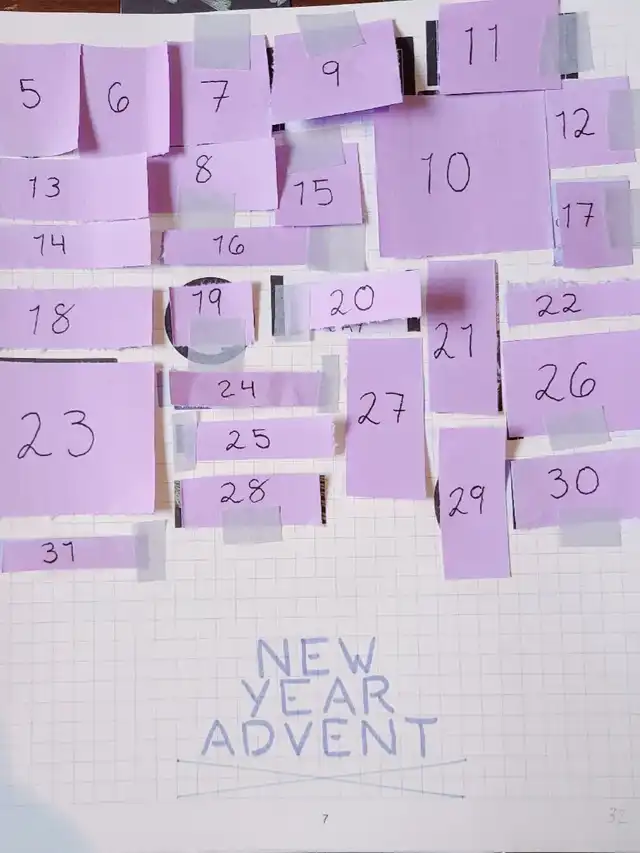 5 6 7 9 11
12
10
8
13 15
17
14 16
18 19 20 22
21
23 24 27 26
25
28 29 30
31
NEW
YEAR
ADVENT
7